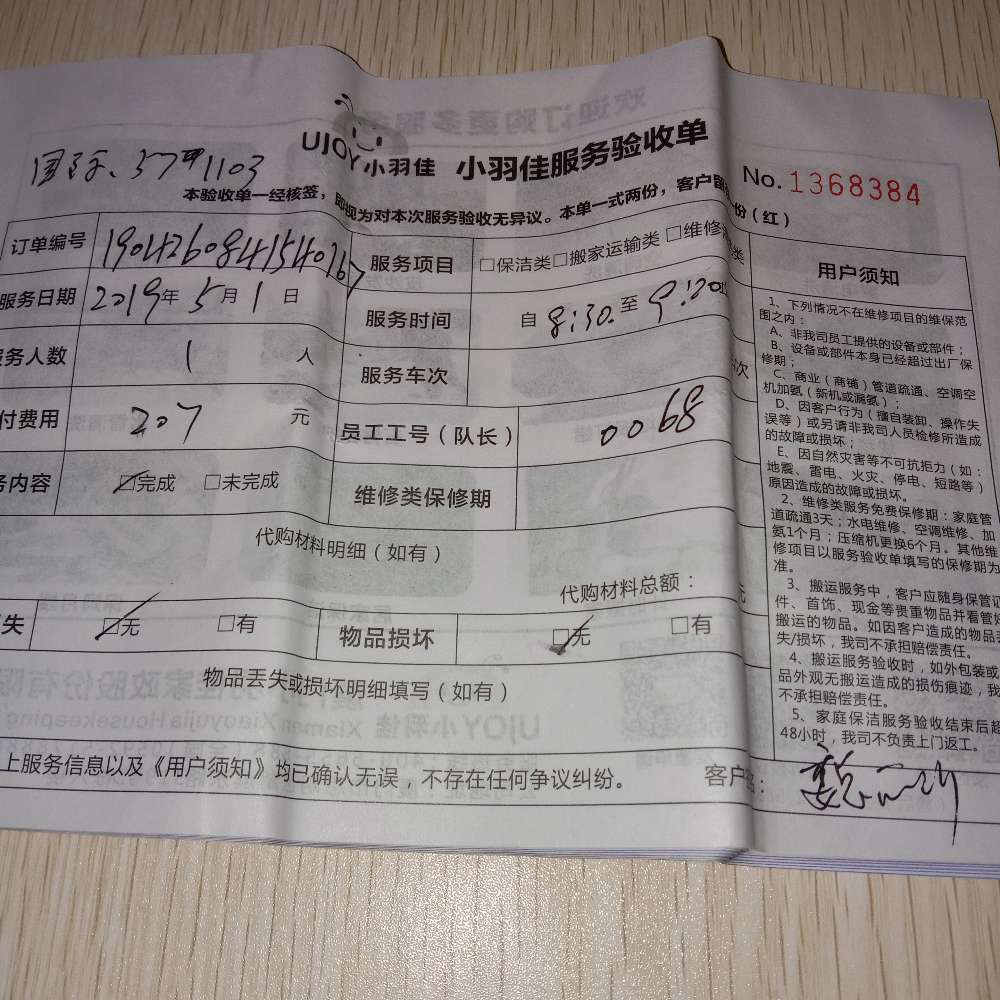 UJOY小羽佳 小羽佳服务验收单
No. 1368384
1103
本验收单一经核签，即视为对本次服务验收无异议。本单一式两份，客户留
份(红)
订单编号 190426084154016
服务项目 □保洁类 □搬家运输类 □维修
类
服务日期 2019年5月1日
服务时间 自 8:30 至
服务人数 1 人
服务车次
次
付费用 207 元
员工工号（队长） 0068
务内容 ☑完成 □未完成
维修类保修期
代购材料明细（如有）
代购材料总额：
元
失 ☑无 □有
物品损坏 ☑无 □有
物品丢失或损坏明细填写（如有）
上服务信息以及《用户须知》均已确认无误，不存在任何争议纠纷。
客户 名：
用户须知
1、下列情况不在维修项目的维保范
围之内：
A、非我司员工提供的设备或部件；
B、设备或部件本身已经超过出厂保
修期；
C、商业（商铺）管道疏通、空调空
机加氨（新机或漏氨）；
D、因客户行为（擅自装卸、操作失
误等）或另请非我司人员检修所造成
的故障或损坏；
E、因自然灾害等不可抗拒力（如：
地震、雷电、火灾、停电、短路等）
原因造成的故障或损坏。
2、维修类服务免费保修期：家庭管
道疏通3天；水电维修、空调维修、加
氨1个月；压缩机更换6个月。其他维
修项目以服务验收单填写的保修期为
准。
3、搬运服务中，客户应随身保管证
件、首饰、现金等贵重物品并看管好
搬运的物品。如因客户造成的物品
失/损坏，我司不承担赔偿责任。
4、搬运服务验收时，如外包装或
品外观无搬运造成的损伤痕迹，我
不承担赔偿责任。
5、家庭保洁服务验收结束后超
48小时，我司不负责上门返工。